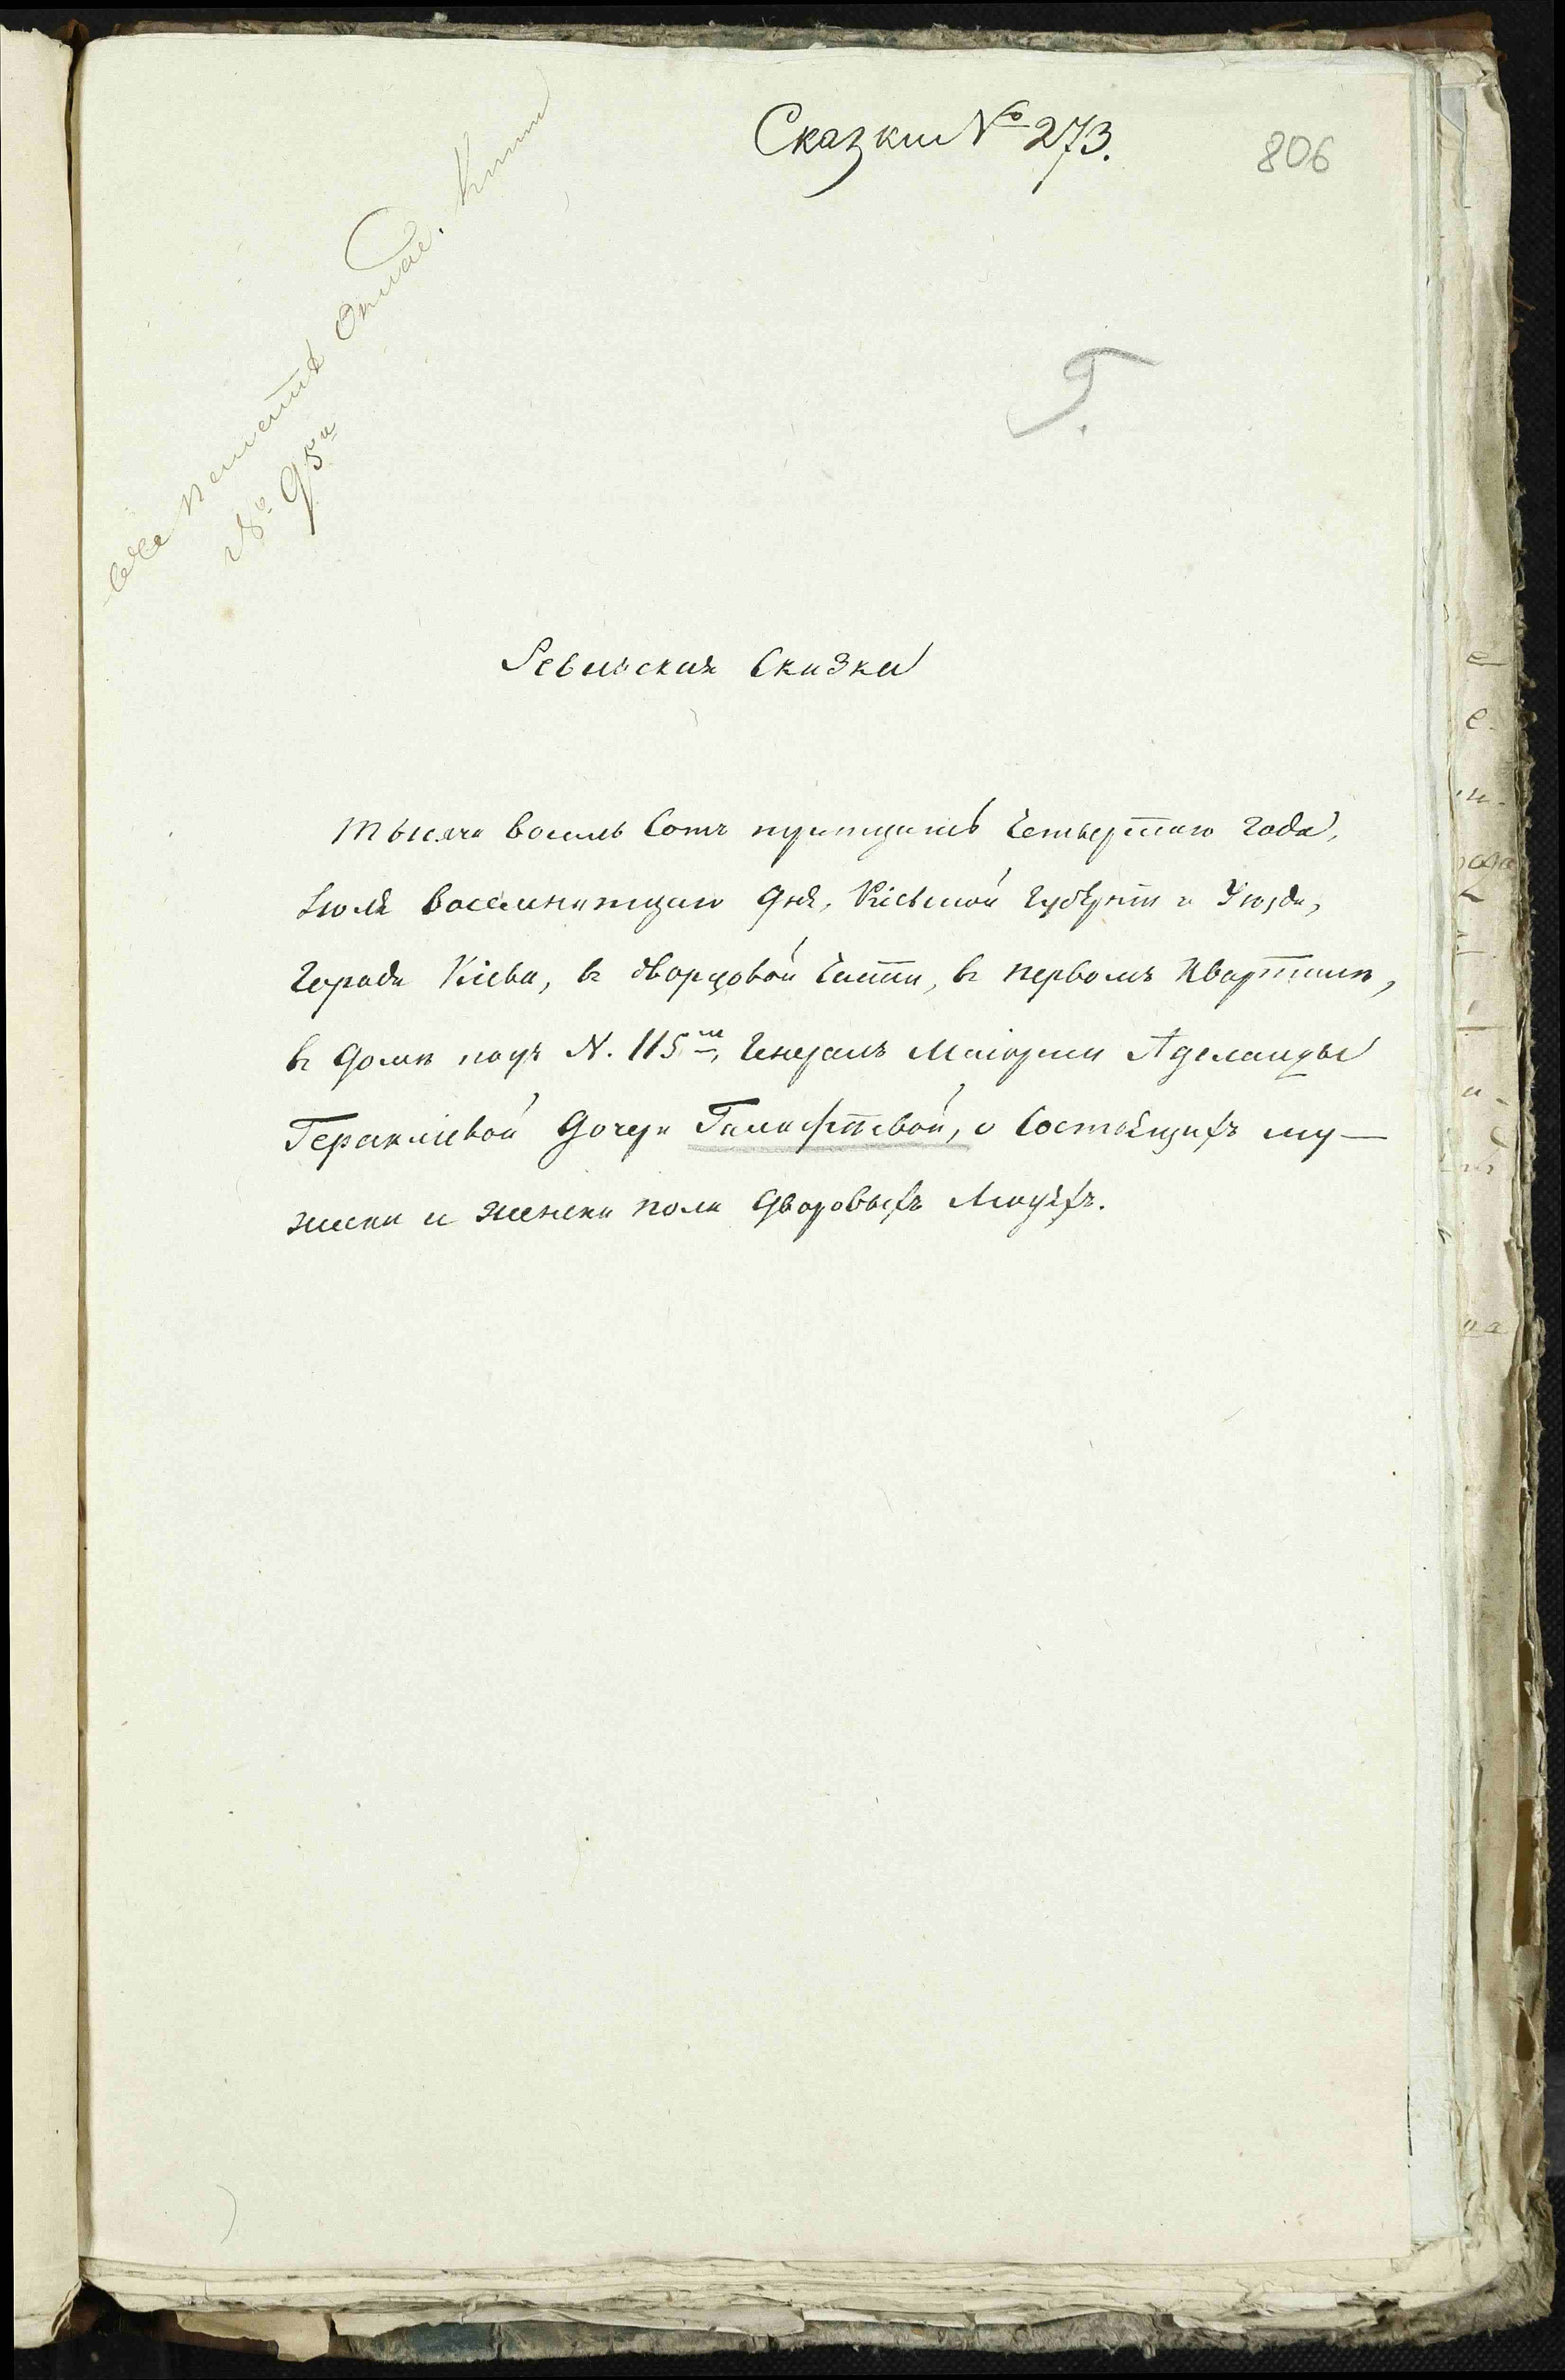 Сказки № 273.
806
Г.
№ 95й
Ревизская Сказка
Тысяча восемь Сотъ тритцать Четвертаго Года,
Іюля восемнатцаго Дня, Кіевской Губерніи и Уезда,
Города Кіева, въ дворцовой Части, въ первомъ Кварталѣ,
въ Домѣ подъ N. 115м, Генералъ Маіорши Аделаиды
Геракліевой Дочери Галафѣевой, о Состоящихъ му-
жеска и женска пола Дворовыхъ Людѣхъ.